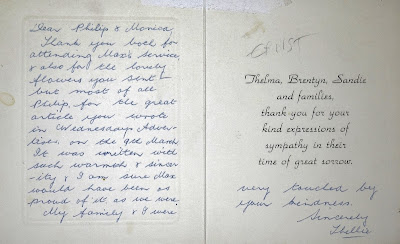 Dear Philip & Monica,
Thank you both for
attending Max's service
& also for the lovely
flowers you sent –
but most of all
Philip, for the great
article you wrote
in Wednesdays Adver-
tiser, on the 9th March
It was written with
such warmth & sincer-
ity & I am sure Max
would have been as
proud of it, as we were.
My family & I were
Thelma, Brentyn, Sandie
and families,
thank you for your
kind expressions of
sympathy in their
time of great sorrow.
very touched by
your kindness.
Sincerely